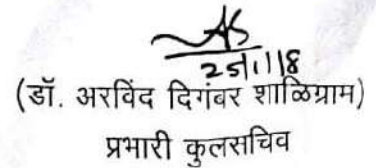 25/1/18
(डॉ. अरविंद दिगंबर शाळिग्राम)
प्रभारी कुलसचिव